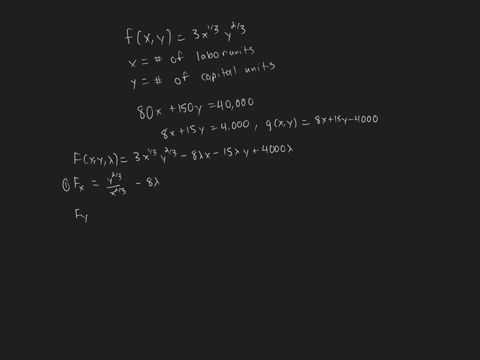 f(x,y) = 3x^{1/3} y^{2/3}
x = # of labor units
y = # of capital units
80x + 150y = 40,000
8x + 15y = 4,000, g(x,y) = 8x+15y-4000
F(x,y,λ) = 3x^{1/3} y^{2/3} - 8λx - 15λy + 4000λ
① F_x = y^{2/3}/x^{2/3} - 8λ
F_y